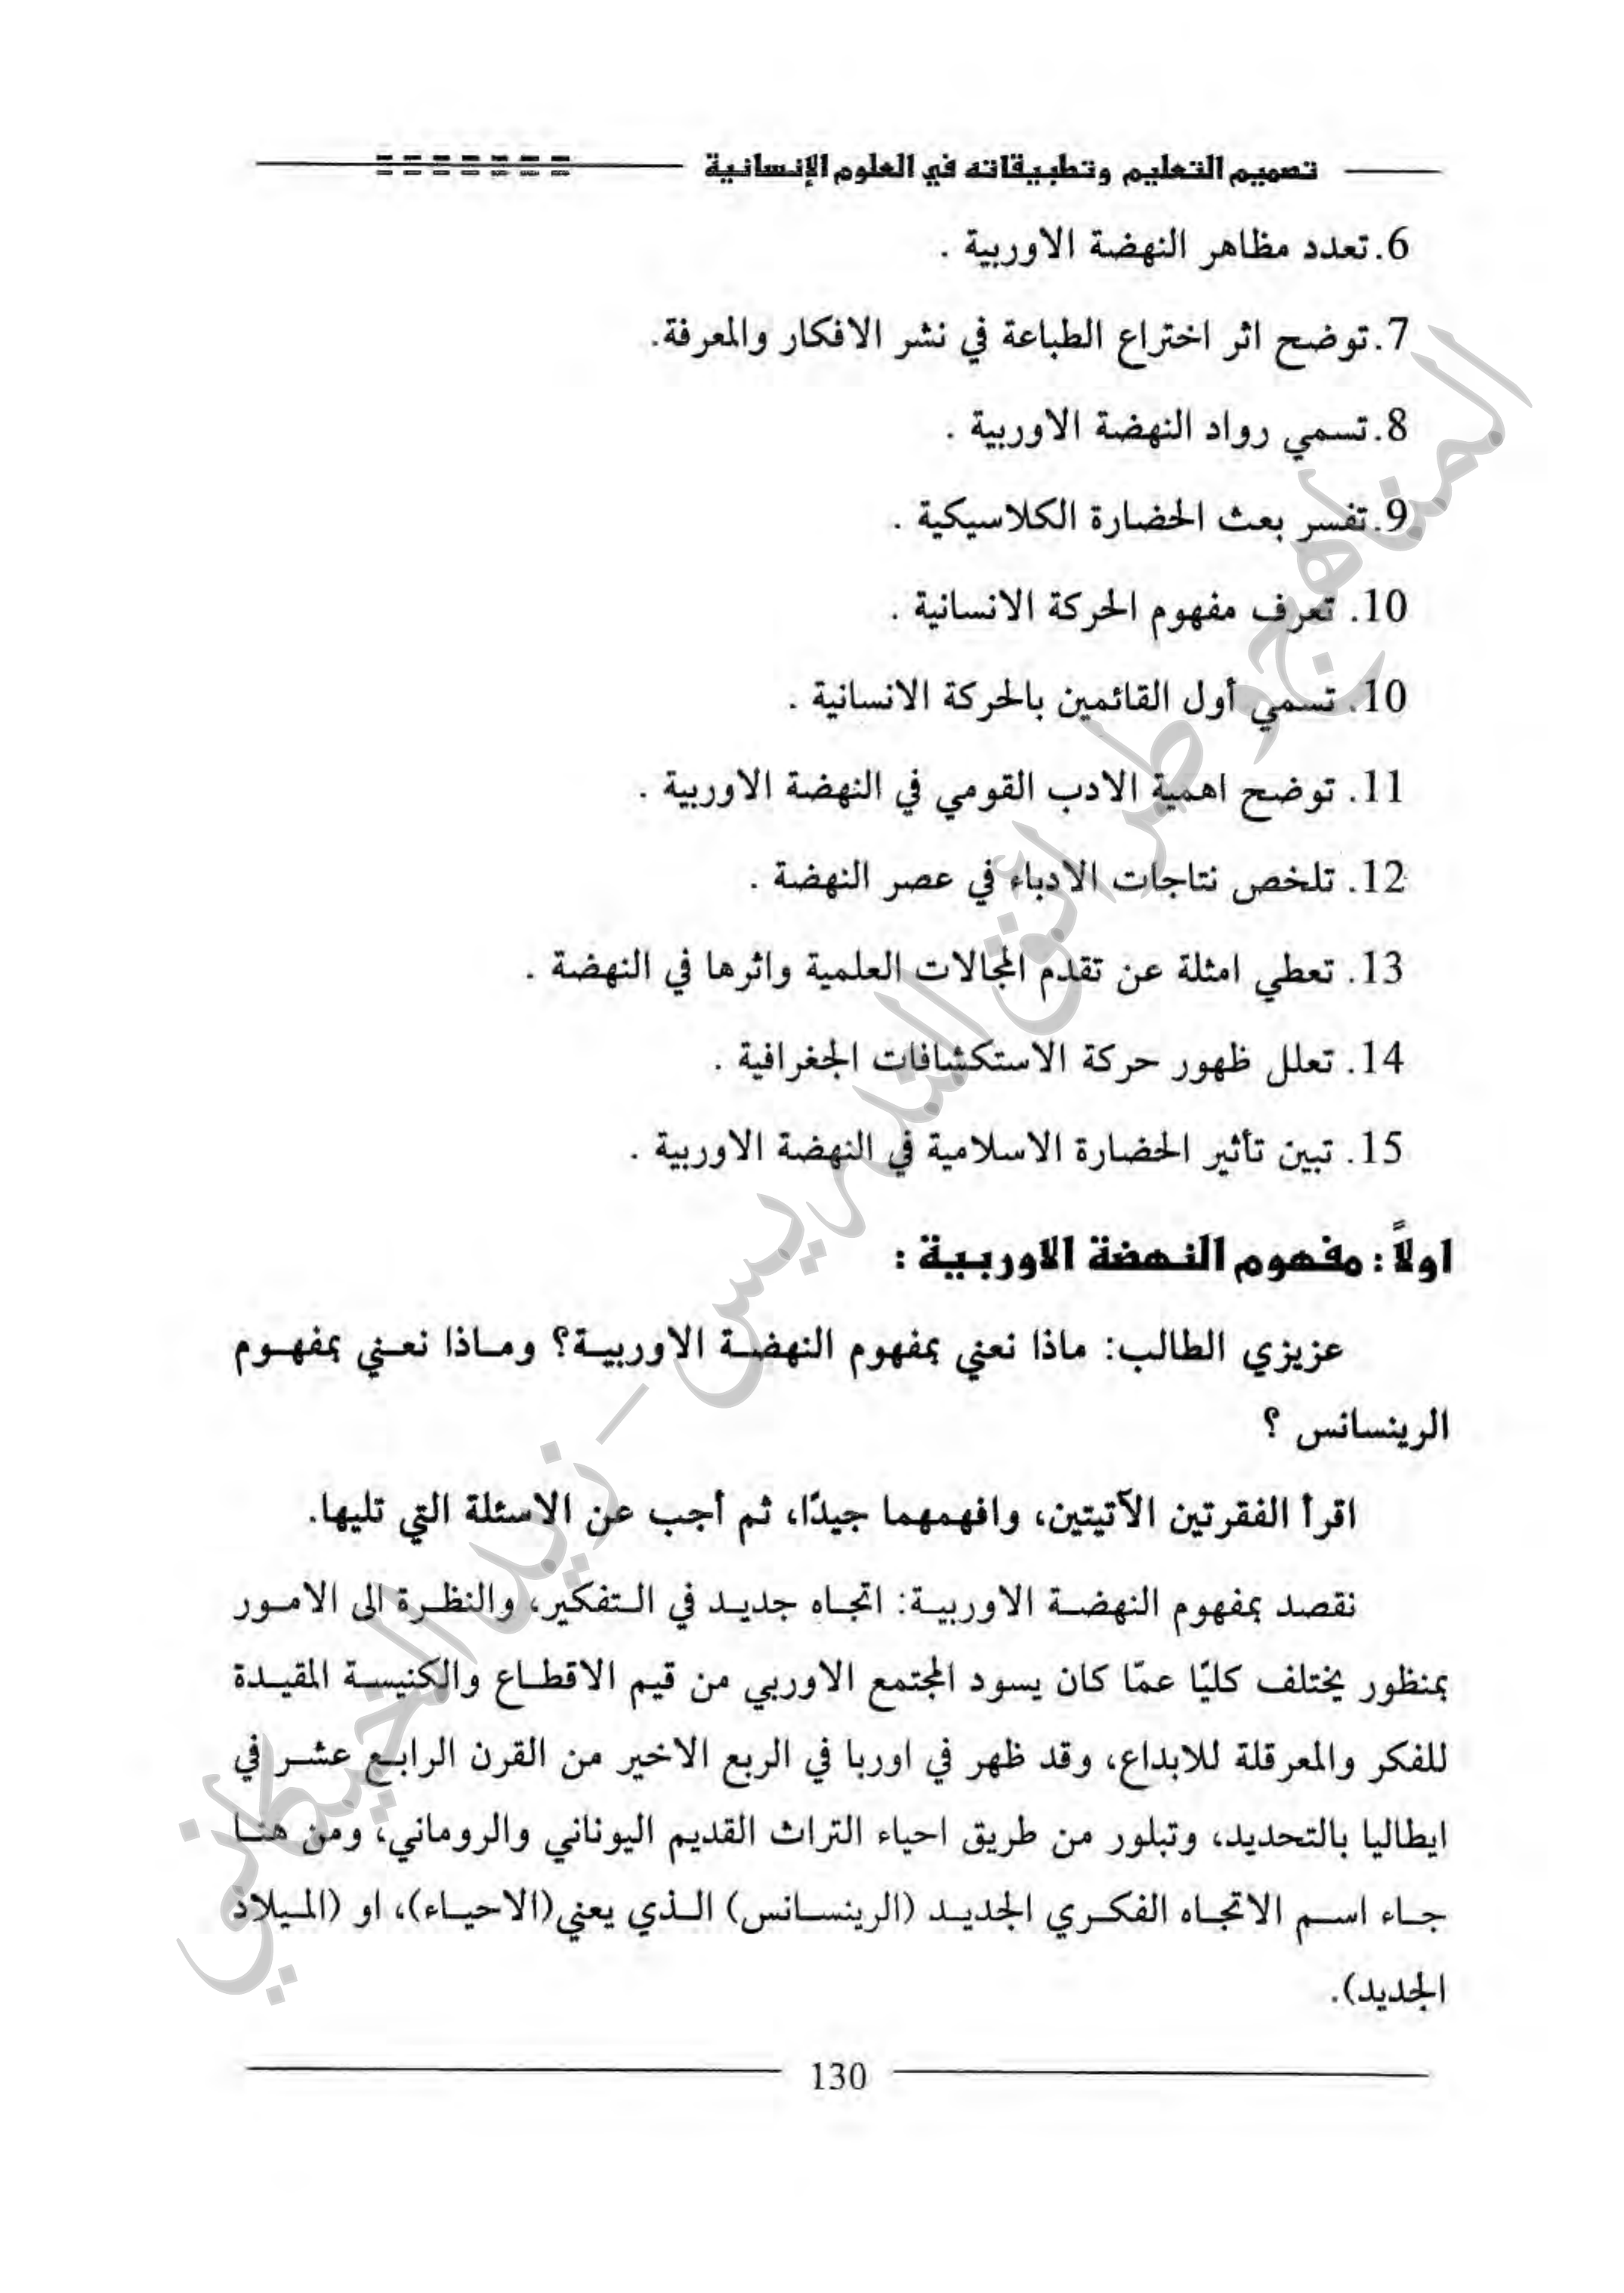 تصميم التعليم وتطبيقاته في العلوم الإنسانية
6.تعدد مظاهر النهضة الاوربية .
7.توضح اثر اختراع الطباعة في نشر الافكار والمعرفة.
8.تسمي رواد النهضة الاوربية .
9.تفسر بعث الحضارة الكلاسيكية .
10. تعرف مفهوم الحركة الانسانية .
10. تسمي أول القائمين بالحركة الانسانية .
11. توضح اهمية الادب القومي في النهضة الاوربية .
12. تلخص نتاجات الادباء في عصر النهضة .
13. تعطي امثلة عن تقدم المجالات العلمية واثرها في النهضة .
14. تعلل ظهور حركة الاستكشافات الجغرافية .
15. تبين تأثير الحضارة الاسلامية في النهضة الاوربية .
اولاً : مفهوم النهضة الاوربية :
عزيزي الطالب: ماذا نعني بمفهوم النهضة الاوربية؟ وماذا نعني بمفهوم
الرينسانس ؟
اقرأ الفقرتين الآتيتين، وافهمهما جيدًا، ثم أجب عن الاسئلة التي تليها.
نقصد بمفهوم النهضة الاوربية: اتجاه جديد في التفكير، والنظرة الى الامور
بمنظور يختلف كليًا عمّا كان يسود المجتمع الاوربي من قيم الاقطاع والكنيسة المقيدة
للفكر والمعرقلة للابداع، وقد ظهر في اوربا في الربع الاخير من القرن الرابع عشر في
ايطاليا بالتحديد، وتبلور من طريق احياء التراث القديم اليوناني والروماني، ومن هنا
جاء اسم الاتجاه الفكري الجديد (الرينسانس) الذي يعني(الاحياء)، او (الميلاد
الجديد).
130
المناهج وطرائق التدريس – زيد الخيكاني